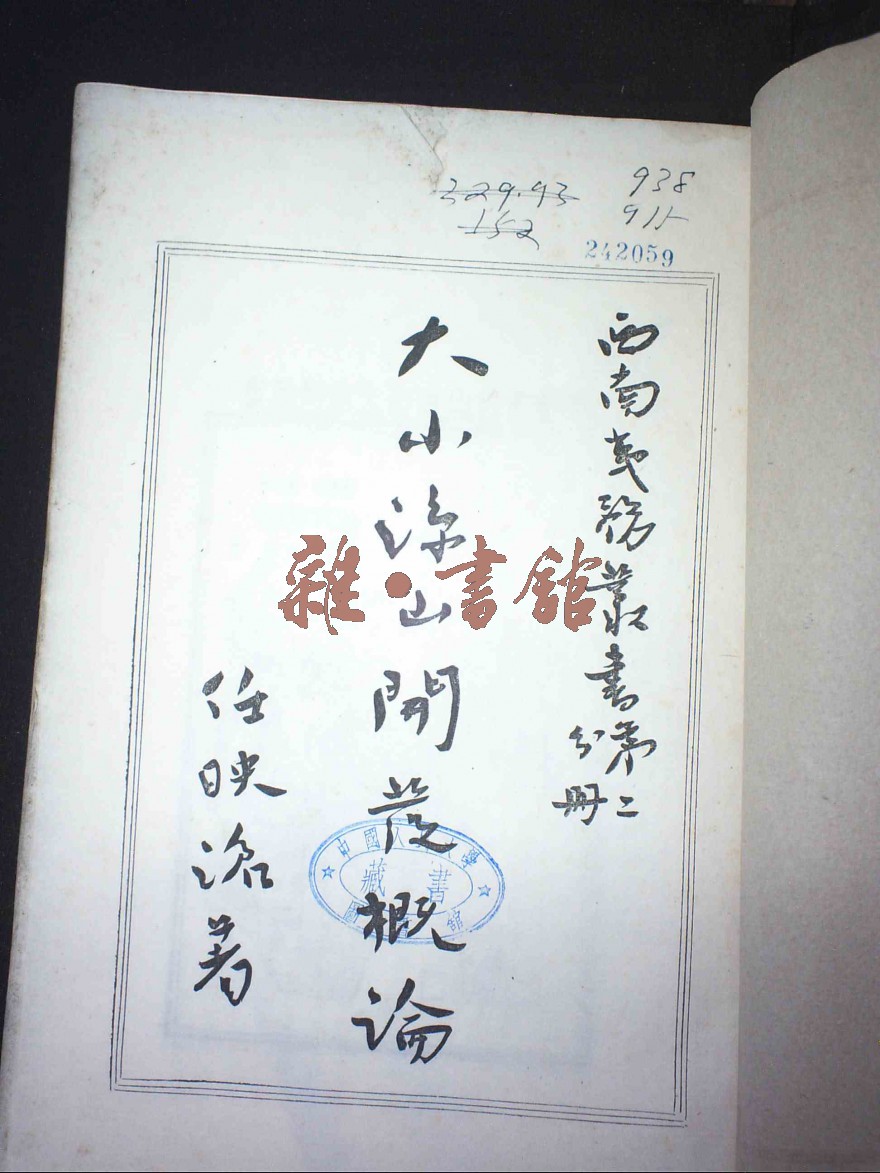 329.93
152
938
915
242059
西南夷務叢書第二
分冊
大小涼山開發概論
任映滄著
雜·書館
中國人民大學
藏書
圖書館